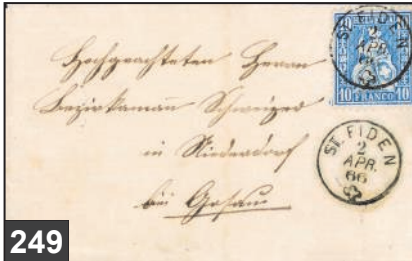 10 10
ST. FIDEN
2
APR.
66
10 FRANCO 10
Hochgeachteten Herrn
Bezirksamann Schweizer
in Niederdorf
bei Gossau
ST. FIDEN
2
APR.
66
249